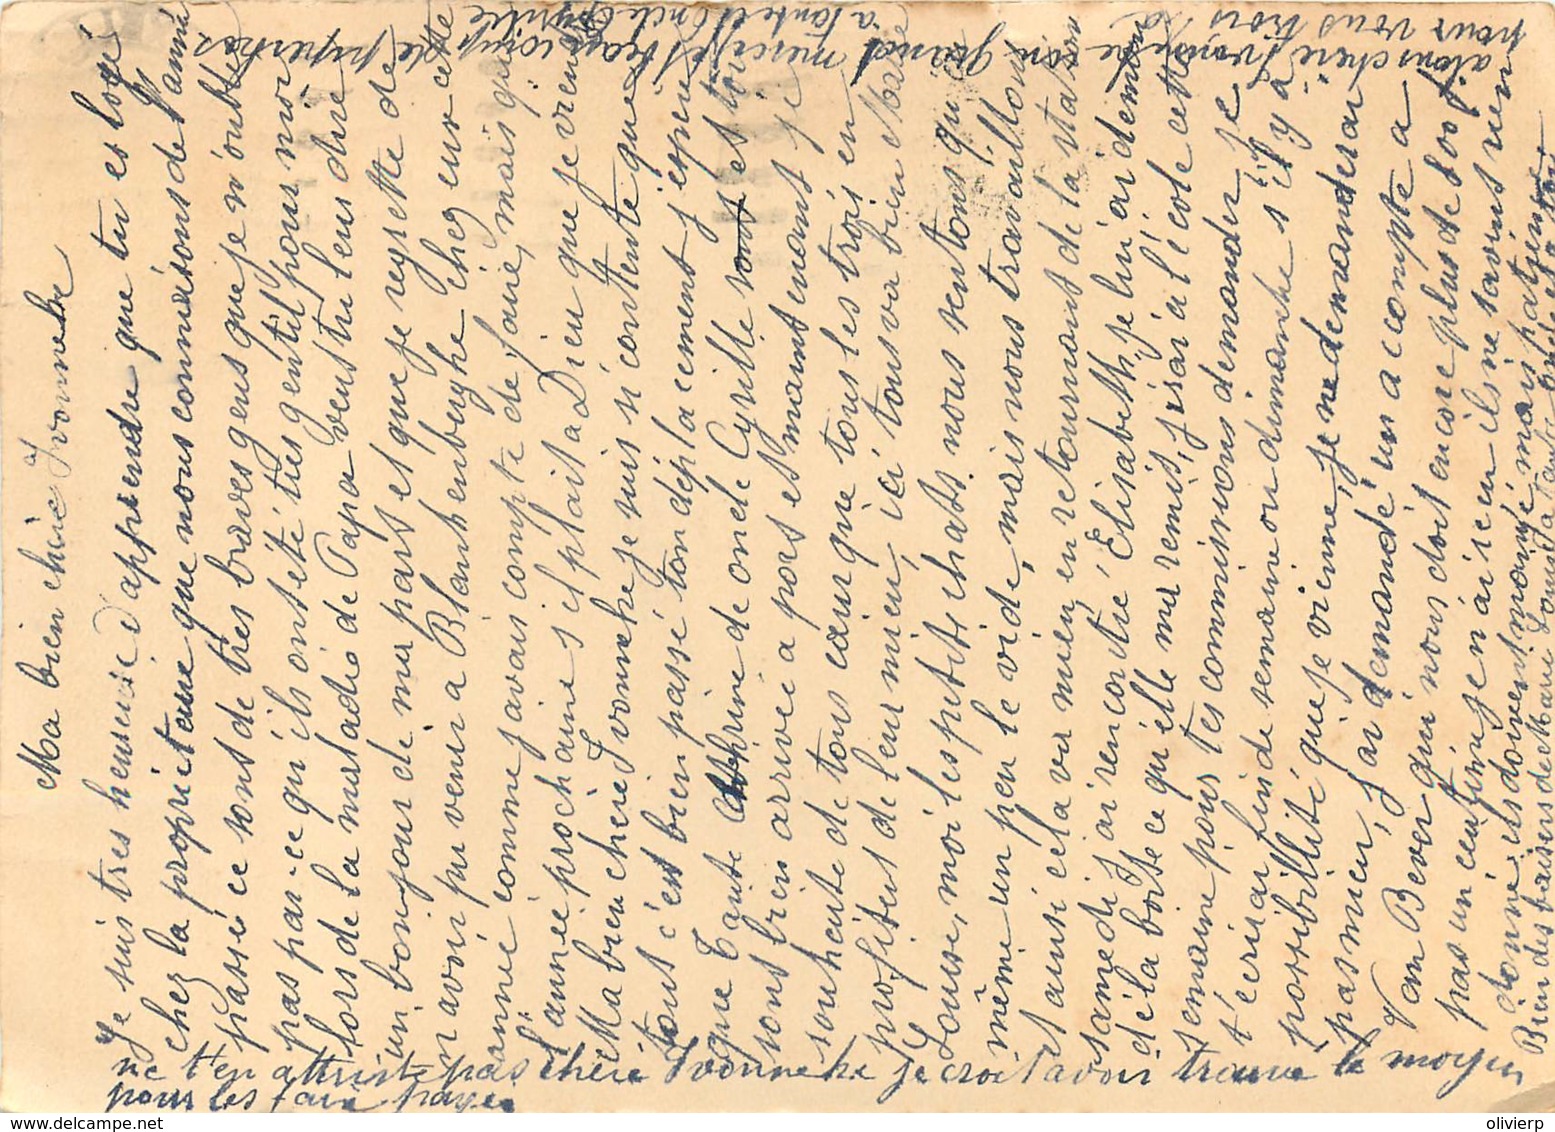 Ma bien chère Ivonneke
Je suis tres heureuse d'apprendre que tu es logé
chez la propriétaire que nous connaissons de l'anné
passée ce sont de très braves gens que je n'oublie
pas par-ce qu'ils ont été très gentil pour moi
lors de la maladie de Papa veustu leus dire
un bonjour de ma part et que je regrette de
n'avoir pu venir a Blankenberghe chez eux cette
année comme j'avais compte de faire, mais que
l'année prochaine s'il plait a Dieu que je viens
Ma bien chère Ivonneke je suis si contente que
tout c'est bien passé ton déplacement j'espere
que Tante Cathrine de oncle Cyrille sont et toi
sont bien arrivée a port et maintenant je
souheute de tous cœur que tous les trois en
profiteś de leur mieu, ici tous va bien Masé
Louise, moi les petits chats nous sentons que
même un peu le vide, mais nous travaillons
et ainsi cela va mien, en retournant de la station
samedi j'ai rencontré Elisabeth je lui ai demand
dela boite ce qu'elle ma remis, j'irai a l'école cette
semaine pour tes commissions demander je
t'ecrirai fin de semaine ou dimanche s'il y a
possibilité que je vienne, je ne demanderai
pas mieu, j'ai demandé un accompte a
Van Bever qui nous doit encore plus de 500 f
pas un centime je n'ai recu ils ne savent rien
donné, ils doivent mangé, mais patience
Bien des baisers de Marie Louise a Tante oncle et a toi
ne t'en attriste pas chéré Ivonneke je croit avoir trouvé le moyen
pour les faire payer
a ma chère Ivonneke son grand merci et beaucoup de
pour vous trois a tante et oncle Cyrille